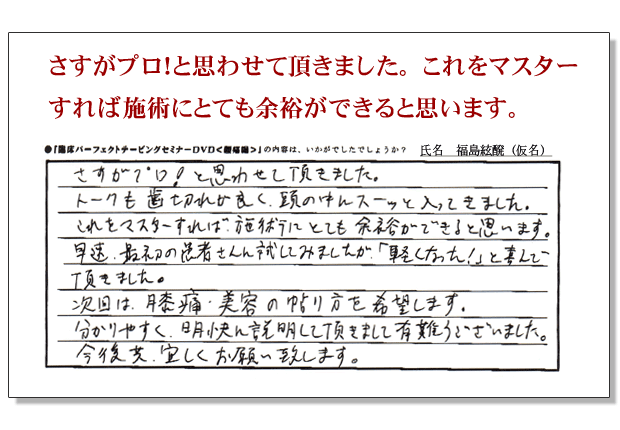 さすがプロ!と思わせて頂きました。これをマスター
すれば施術にとても余裕ができると思います。
●「臨床パーフェクトテーピングセミナーDVD<腰痛編>」の内容は、いかがでしたでしょうか? 氏名 福島絃醗(仮名)
さすがプロ!と思わせて頂きました。
トークも歯切れが良く、頭の中へスーッと入ってきました。
これをマスターすれば、施術にとても余裕ができると思います。
早速、最初の患者さんに試してみましたが、「軽くなった!」と喜んで
頂きました。
次回は、膝痛・美容の貼り方を希望します。
分かりやすく、明快に説明して頂きまして有難うございました。
今後共、宜しくお願い致します。